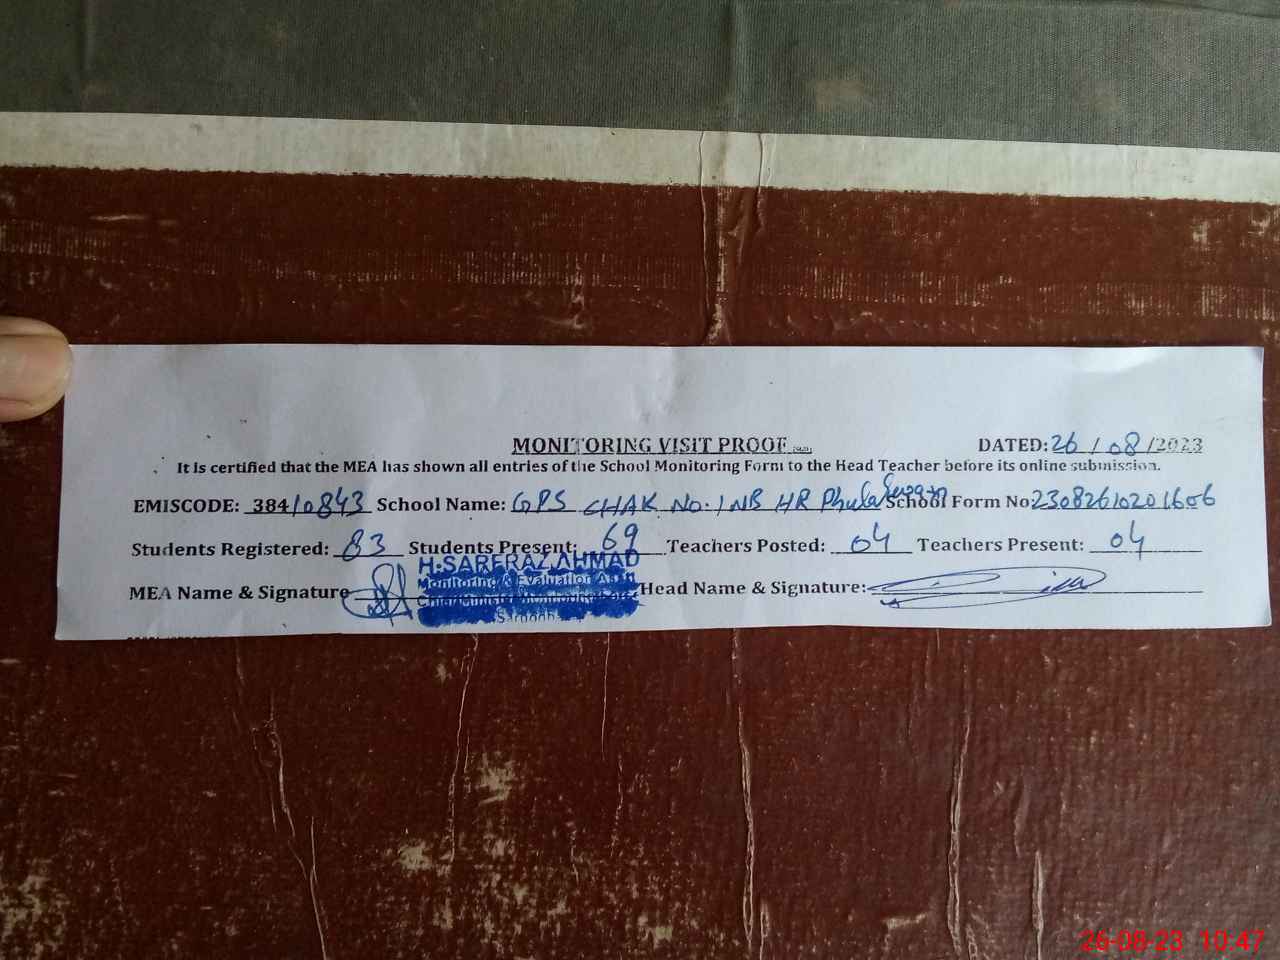 MONITORING VISIT PROOF
DATED: 26 / 08 /2023
It is certified that the MEA has shown all entries of the School Monitoring Form to the Head Teacher before its online submission.
EMISCODE: 384/0843 School Name: GPS CHAK No. 1 NB HR Phularwan School Form No: 23082610201606
Students Registered: 83 Students Present: 69 Teachers Posted: 04 Teachers Present: 04
H.SARFRAZ AHMAD
Monitoring & Evaluation
MEA Name & Signature Head Name & Signature:
26-08-23 10:47